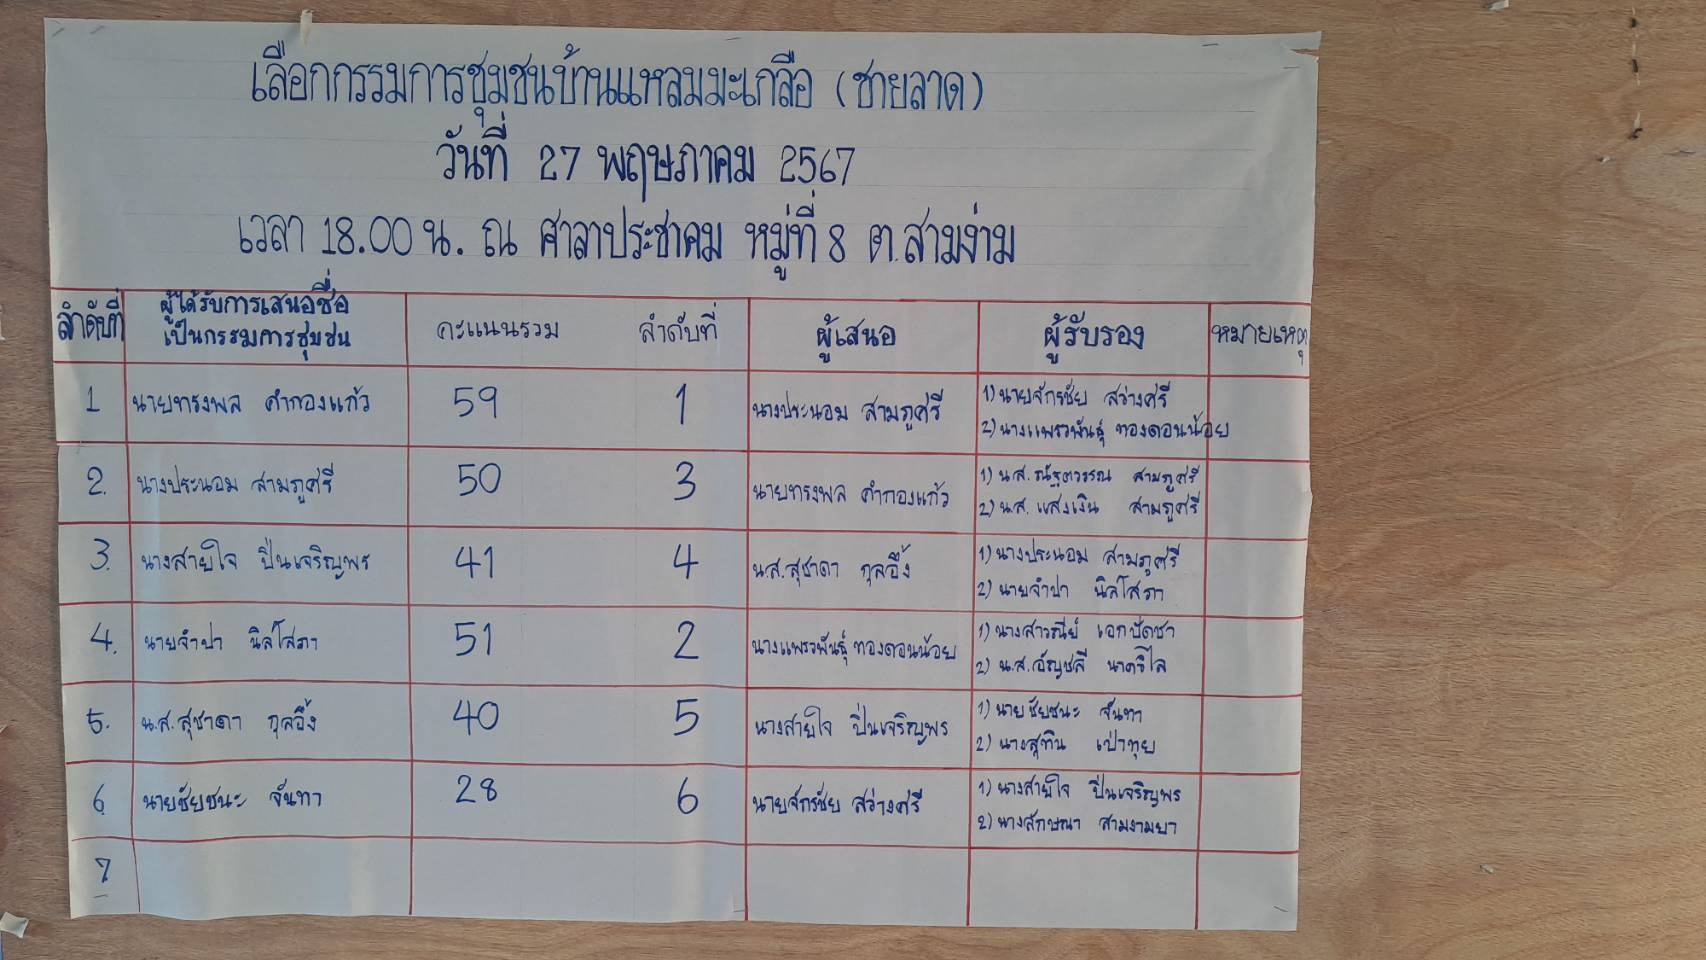 เลือกกรรมการชุมชนบ้านแหลมมะเกลือ (ชายลาด)
วันที่ 27 พฤษภาคม 2567
เวลา 18.00 น. ณ ศาลาประชาคม หมู่ที่ 8 ต.สามง่าม
ลำดับที่ ผู้ได้รับการเสนอชื่อ เป็นกรรมการชุมชน คะแนนรวม ลำดับที่ ผู้เสนอ ผู้รับรอง หมายเหตุ
1 นายทรงพล คำกองแก้ว 59 1 นางประนอม สามภูศรี 1) นายจักรชัย สว่างศรี
2) นางแพรวพันธุ์ ทองดอนน้อย
2. นางประนอม สามภูศรี 50 3 นายทรงพล คำกองแก้ว 1) น.ส.ณัฐตวรรณ สามภูศรี
2) น.ส. แสงเงิน สามภูศรี
3. นางสายใจ ปิ่นเจริญพร 41 4 น.ส.สุชาดา กุลอึ้ง 1) นางประนอม สามภูศรี
2) นายจำปา นิลโสภา
4. นายจำปา นิลโสภา 51 2 นางแพรวพันธุ์ ทองดอนน้อย 1) นางสารณีย์ เอกปัดชา
2) น.ส.อัญชลี นาควิไล
5. น.ส.สุชาดา กุลอึ้ง 40 5 นางสายใจ ปิ่นเจริญพร 1) นายชัยชนะ จันทา
2) นางสุทิน เป่าทุย
6 นายชัยชนะ จันทา 28 6 นายจักรชัย สว่างศรี 1) นางสายใจ ปิ่นเจริญพร
2) นางลักษณา สามงามยา
7